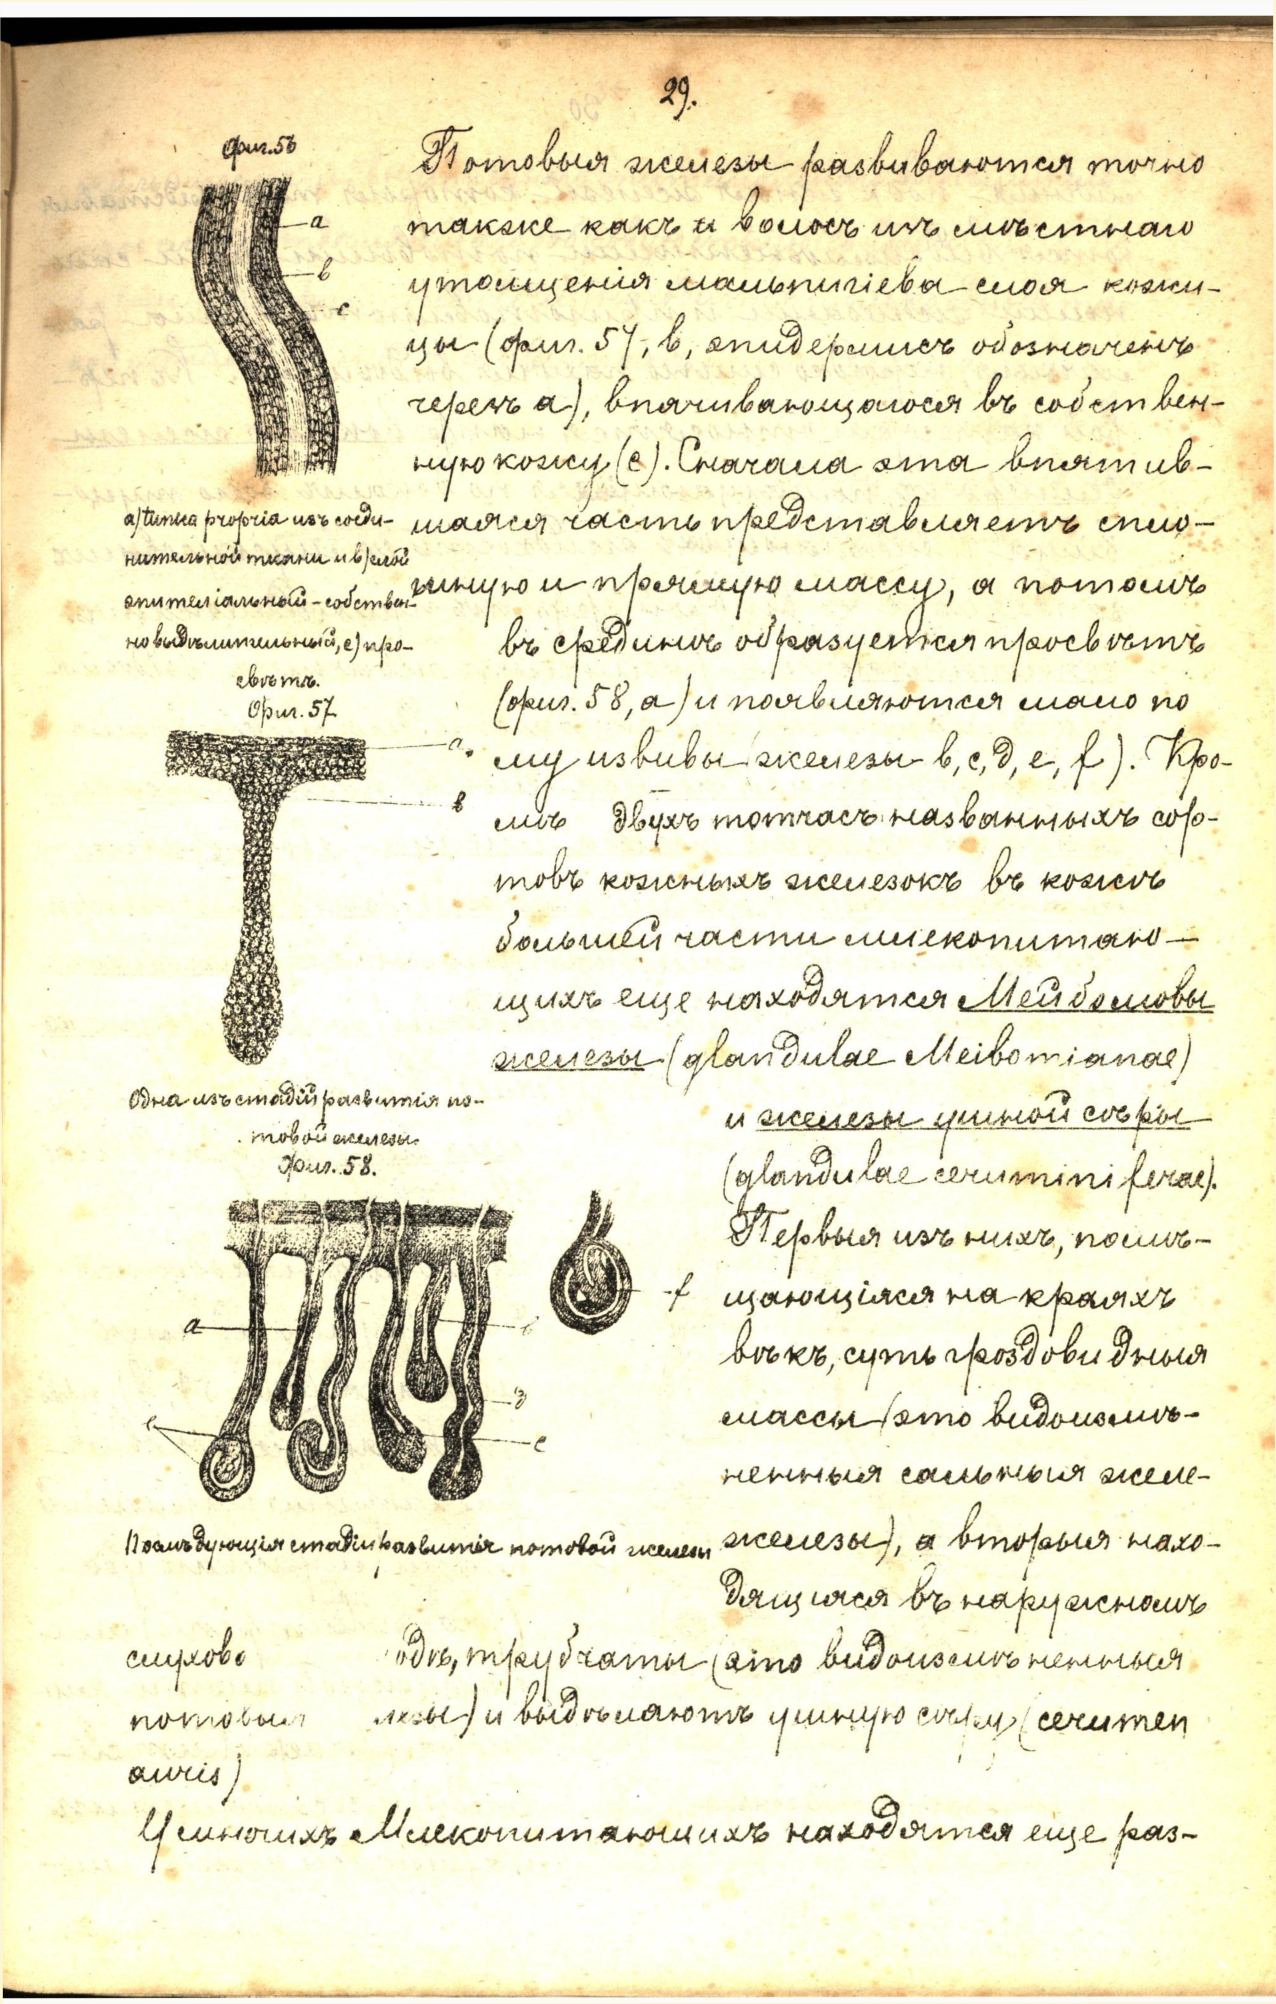 29.
Фиг. 56
a
в
с
а) tunica propria изъ соеди-
нительной ткани и в) слой
эпителіальный - собствен-
но выдѣлительный, с) про-
свѣтъ.
Фиг. 57
а.
в
Одна изъ стадій развитія по-
товой железы.
Фиг. 58.
a
e
в
д
с
f
Послѣдующія стадіи развитія потовой железы
Потовыя железы развиваются точно
также какъ и волосъ изъ мѣстнаго
утолщенія мальпигіева слоя кожи-
цы (фиг. 57, в, эпидермисъ обозначенъ
черезъ а), впячивающагося въ собствен-
ную кожу (с). Сначала эта впятив-
шаяся часть представляетъ спло-
шную и прямую массу, а потомъ
въ срединѣ образуется просвѣтъ
(фиг. 58, а) и появляются мало по
му извивы (железы в, с, д, е, f). Кро-
мѣ двухъ тотчасъ названныхъ сор-
товъ кожныхъ железокъ въ кожѣ
большей части млекопитаю-
щихъ еще находятся Мейбомовы
железы (glandulae Meibomianae)
и железы ушной сѣры
(glandulae ceruminiferae).
Первыя изъ нихъ, помѣ-
щающіяся на краяхъ
вѣкъ, суть гроздовидныя
массы (это видоизмѣ-
ненныя сальныя желе-
железы), а вторыя нахо-
дящіяся въ наружномъ
слухово одѣ, трубчаты (это видоизмѣненныя
потовыя лезы) и выдѣляютъ ушную сѣру (cerumen
auris)
У многихъ Млекопитающихъ находятся еще раз-